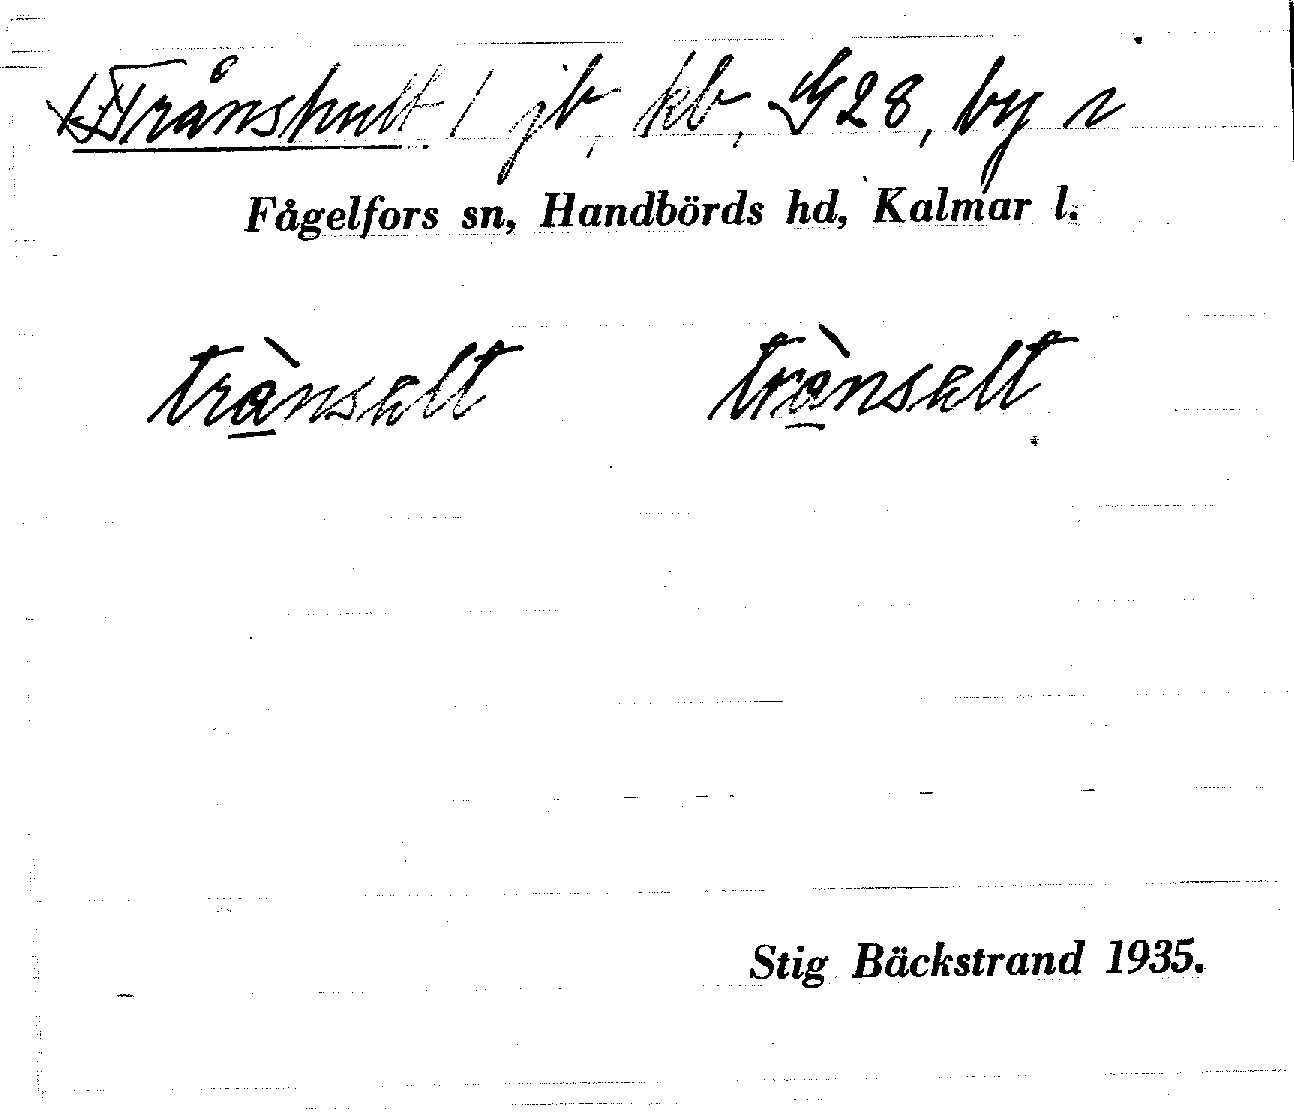 Trånshult / jb, kb, G28, by i
Fågelfors sn, Handbörds hd, Kalmar l.
trànsalt trànsalt
Stig Bäckstrand 1935.